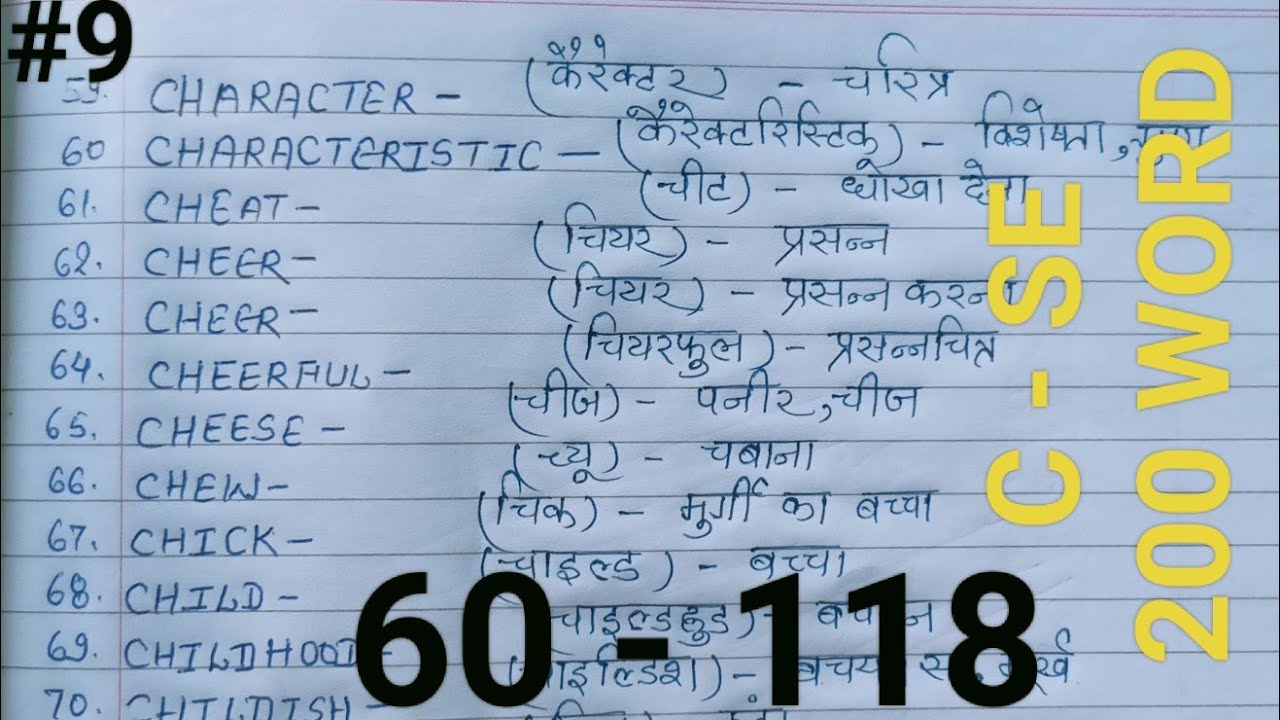 #9
59. CHARACTER - (कैरेक्टर) - चरित्र
60 CHARACTERISTIC - (कैरेक्टरिस्टिक) - विशेषता,
61. CHEAT - (चीट) - धोखा देना
62. CHEER - (चियर) - प्रसन्न
63. CHEER - (चियर) - प्रसन्न करना
64. CHEERFUL - (चियरफुल) - प्रसन्नचित्त
65. CHEESE - (चीज) - पनीर, चीज
66. CHEW - (च्यू) - चबाना
67. CHICK - (चिक) - मुर्गी का बच्चा
68. CHILD - (चाइल्ड) - बच्चा
69. CHILDHOOD - चाइल्डहुड) - बचपन
70. CHILDISH - (चाइल्डिश) -
60 - 118
C - SE
200 WORD